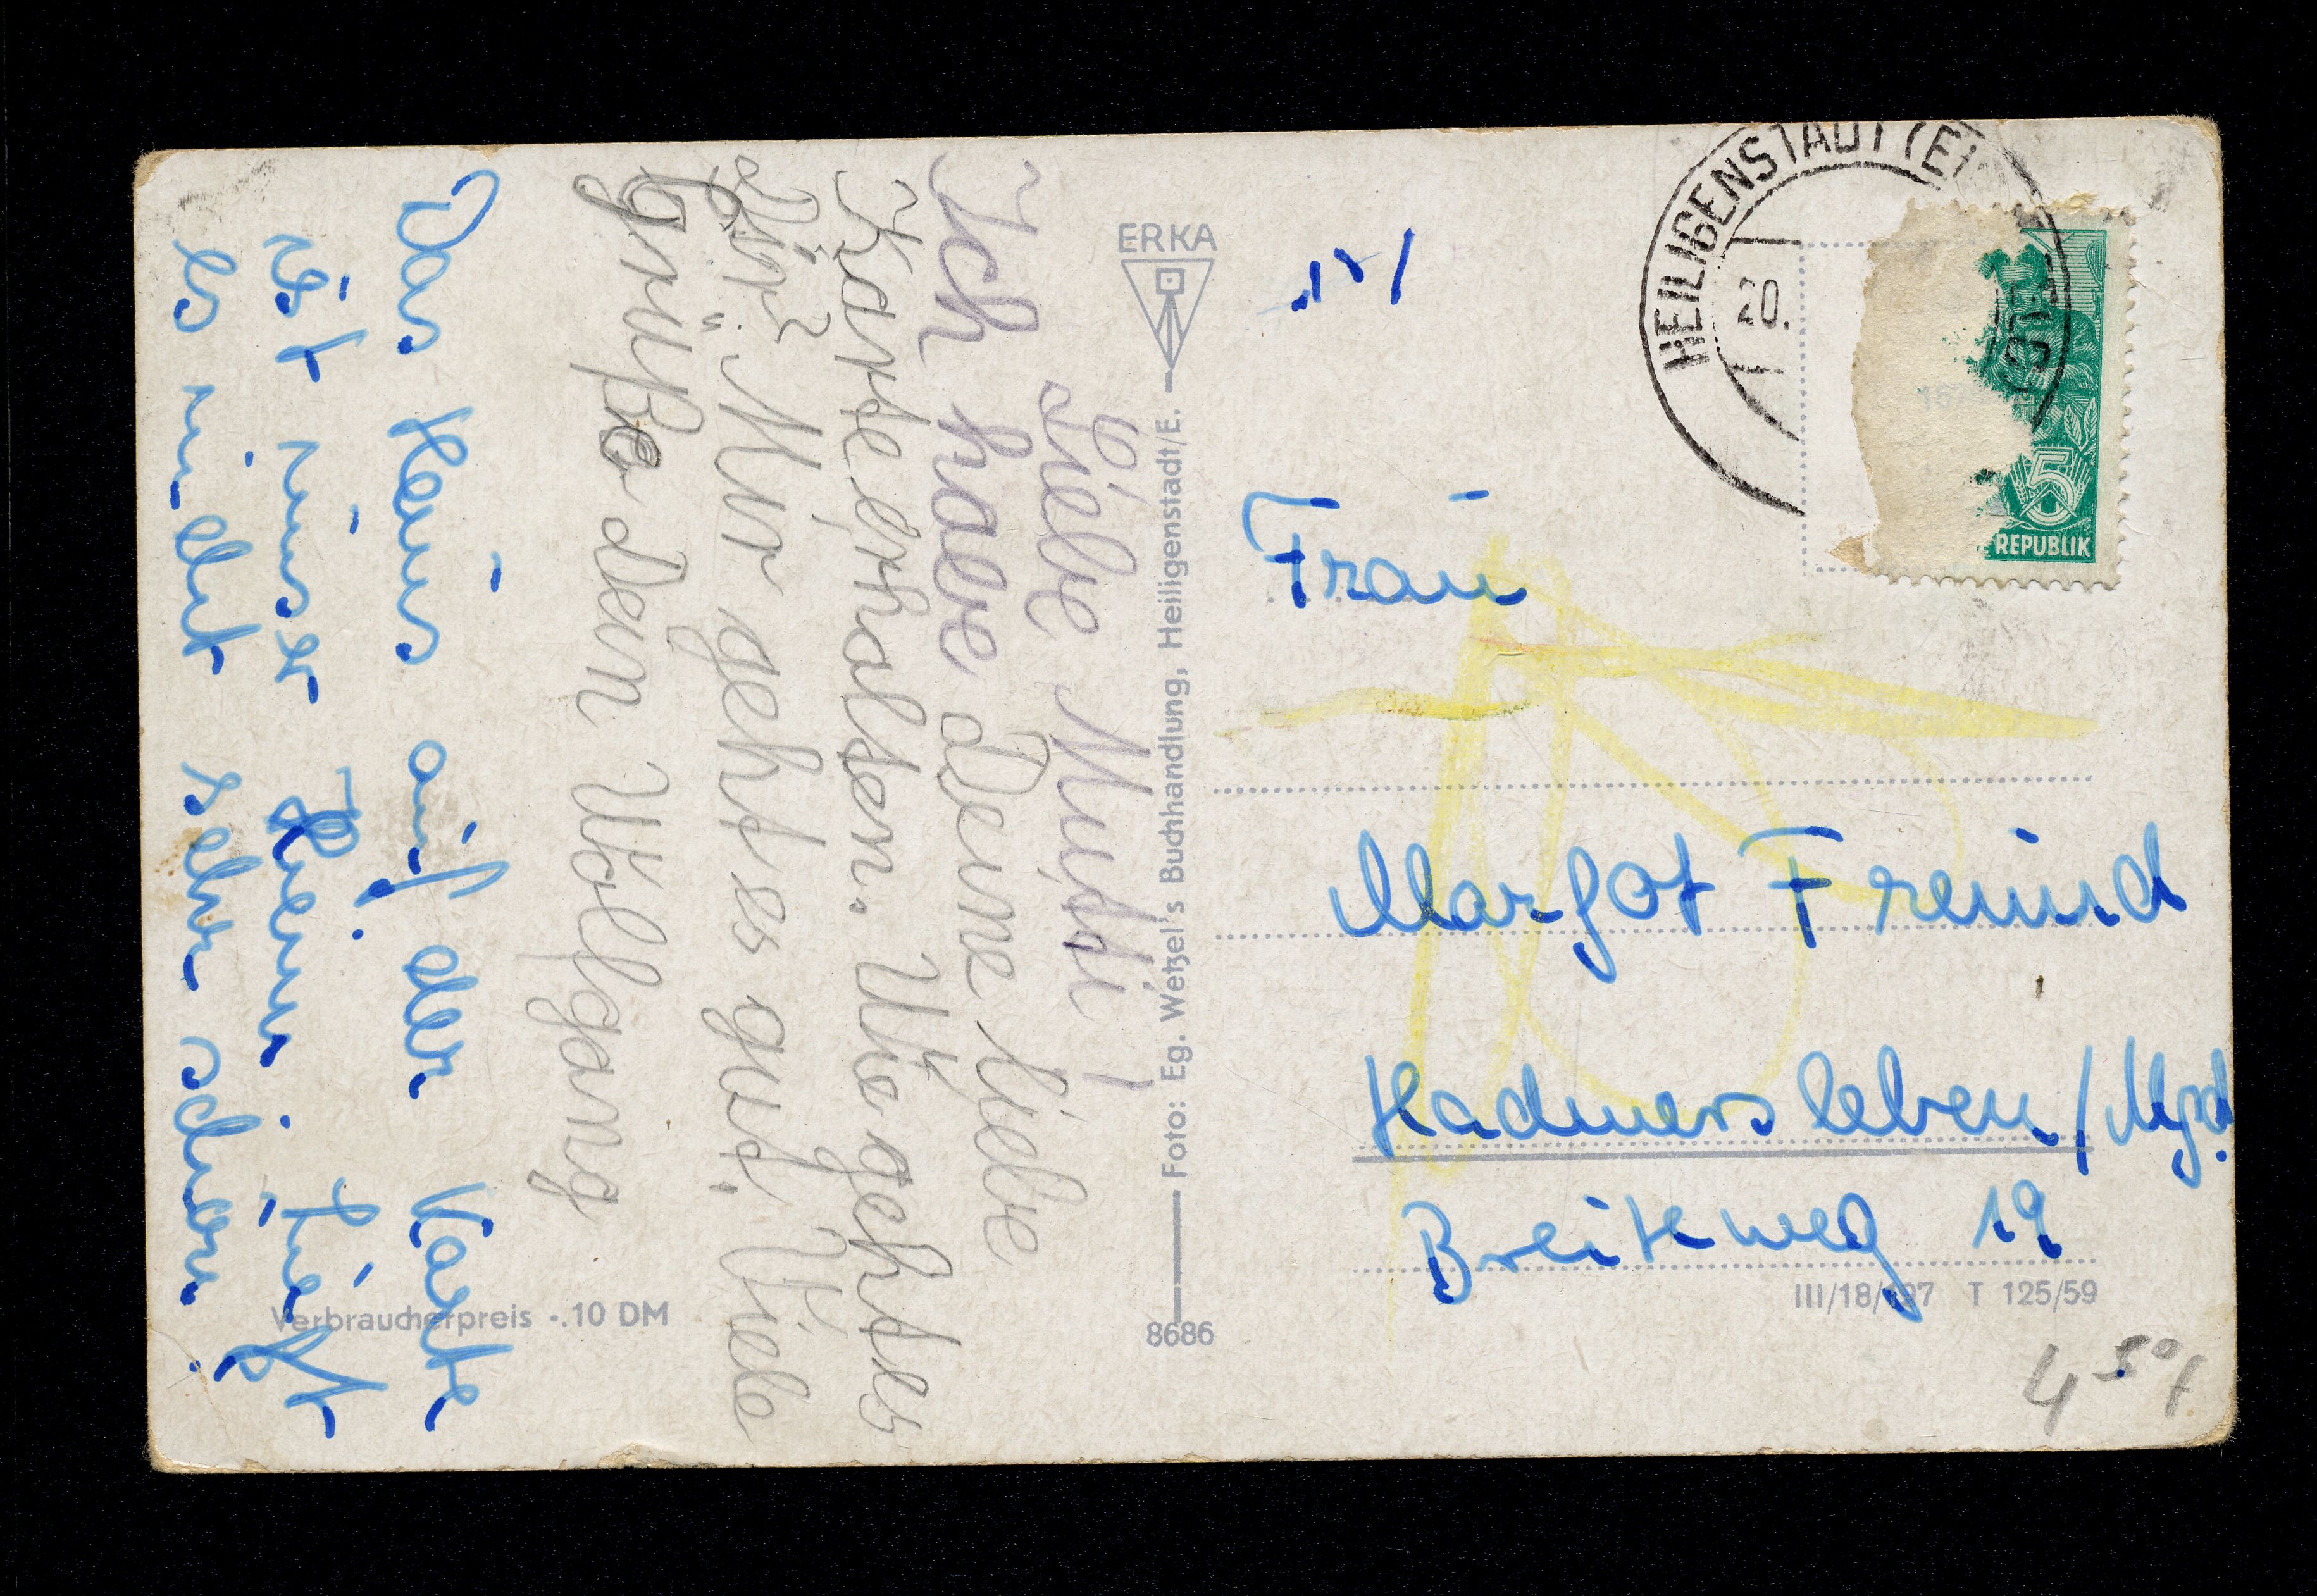 Liebe Mutti!
Ich habe Deine liebe
Karte erhalten. Wie geht es
Dir? Mir geht es gut. Viele
Grüße Dein Wolfgang
Das Haus auf der Karte
ist unser Heim. Hier ist
es nicht sehr schön.
Verbraucherpreis -.10 DM
ERKA
Foto: Eg. Wetzel's Buchhandlung, Heiligenstadt/E.
8686
HEILIGENSTADT (E)
20.
5
REPUBLIK
Frau
Margot Freund
Hadmersleben/Mgd.
Breiteweg 19
III/18/197 T 125/59